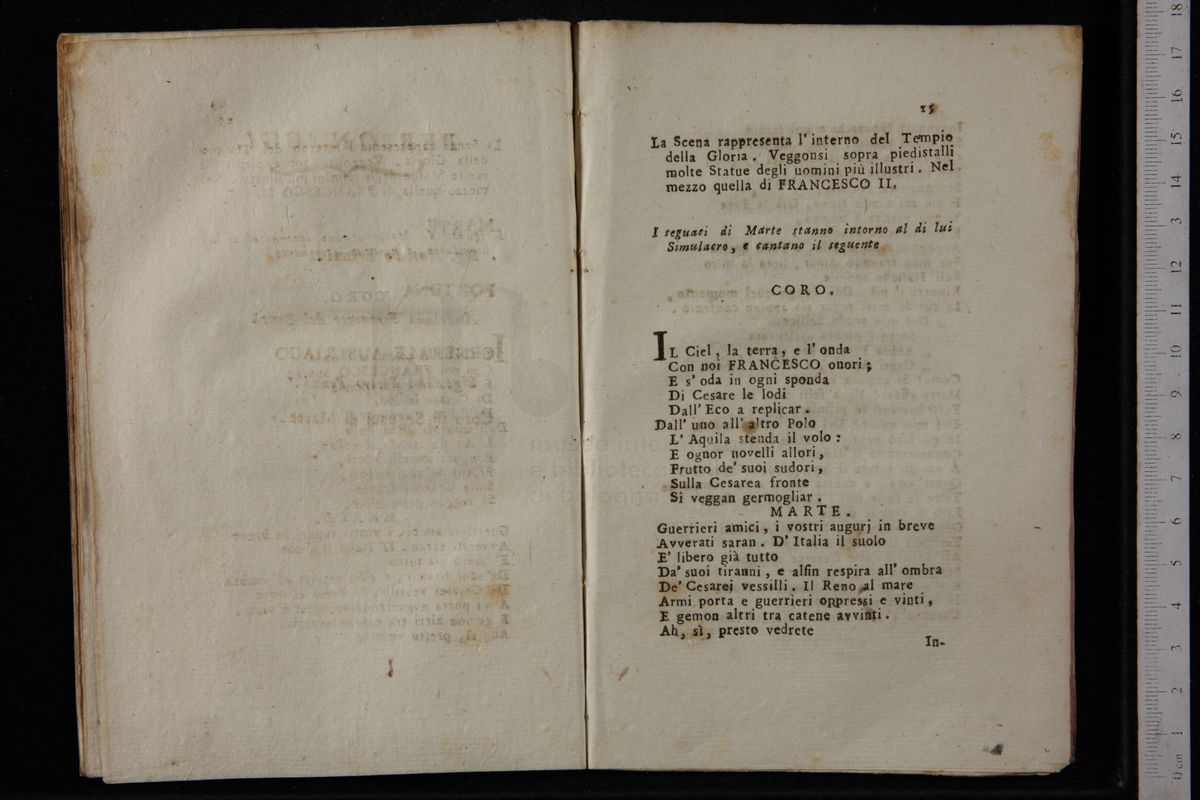 15
La Scena rappresenta l' interno del Tempio
della Gloria. Veggonsi sopra piedistalli
molte Statue degli uomini più illustri. Nel
mezzo quella di FRANCESCO II.
I seguaci di Marte stanno intorno al di lui
Simulacro, e cantano il seguente
CORO.
IL Ciel, la terra, e l' onda
Con noi FRANCESCO onori;
E s' oda in ogni sponda
Di Cesare le lodi
Dall' Eco a replicar.
Dall' uno all' altro Polo
L' Aquila stenda il volo:
E ognor novelli allori,
Frutto de' suoi sudori,
Sulla Cesarea fronte
Si veggan germogliar.
MARTE.
Guerrieri amici, i vostri augurj in breve
Avverati saran. D' Italia il suolo
E' libero già tutto
Da' suoi tiranni, e alfin respira all' ombra
De' Cesarei vessilli. Il Reno al mare
Armi porta e guerrieri oppressi e vinti,
E gemon altri tra catene avvinti.
Ah, sì, presto vedrete
In-
0 cm 1 2 3 4 5 6 7 8 9 10 11 12 13 14 15 16 17 18